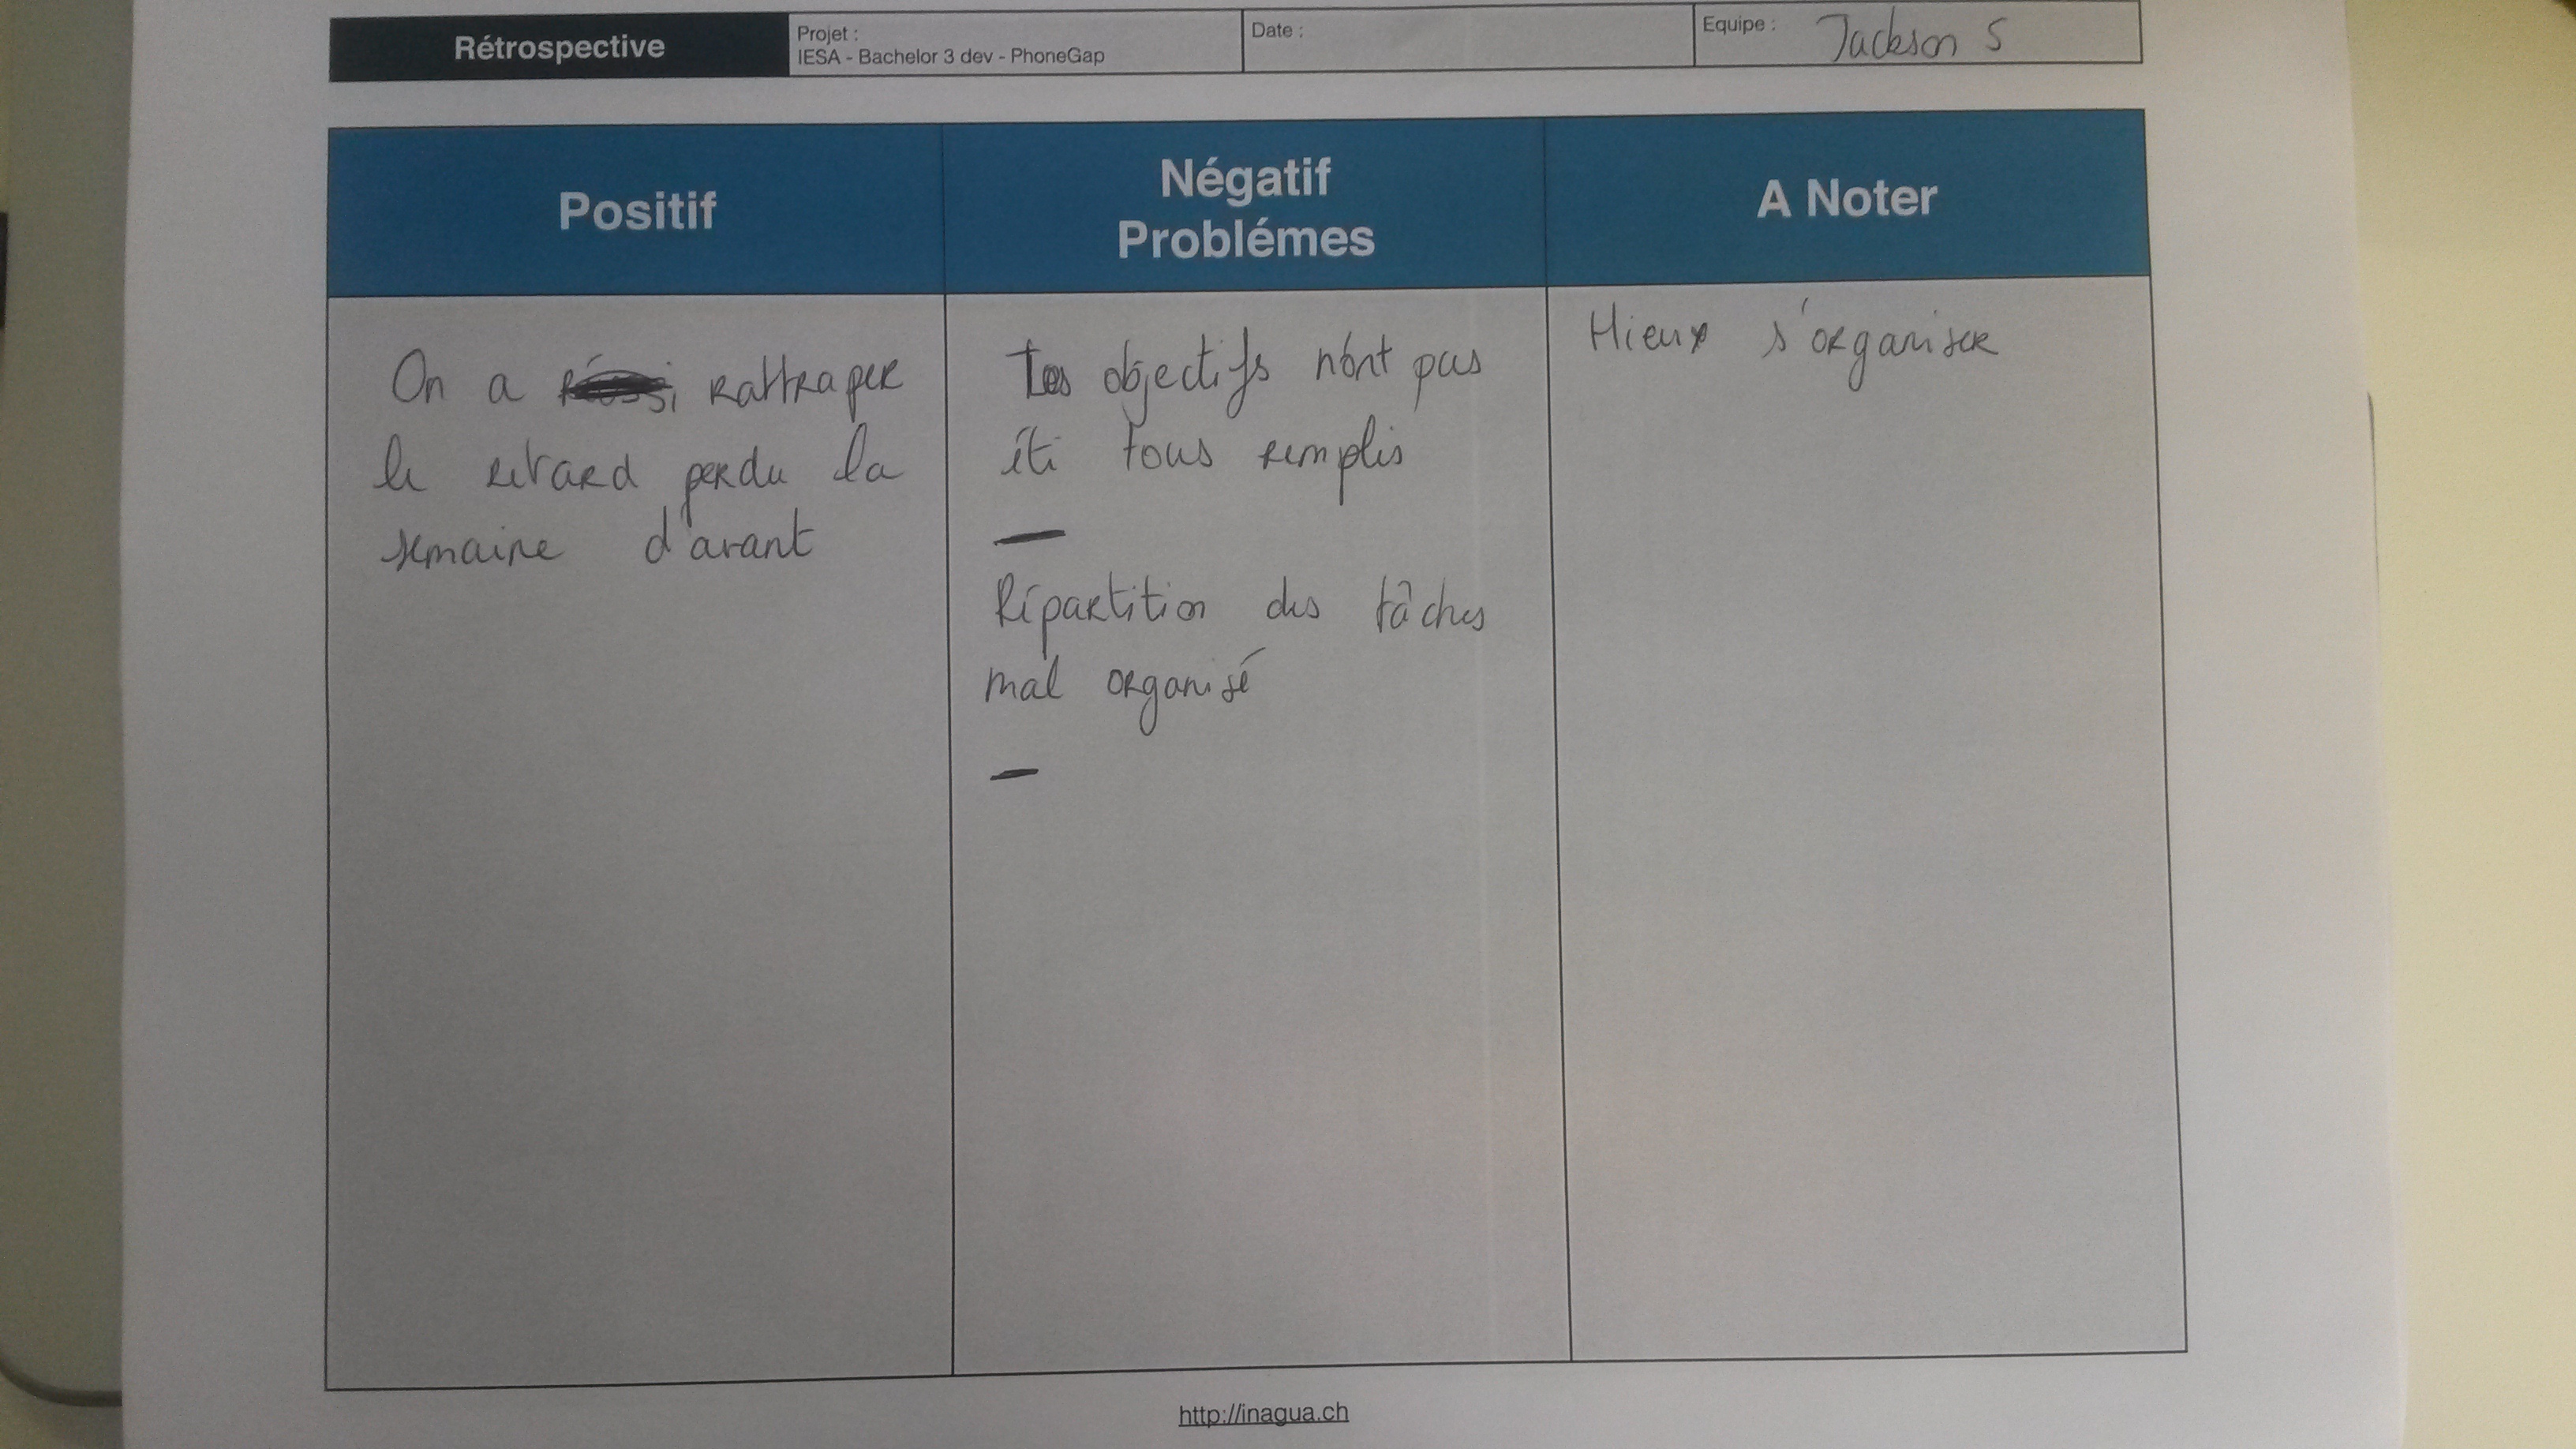 Rétrospective
Projet :
IESA - Bachelor 3 dev - PhoneGap
Date :
Equipe : Jackson 5
Positif
Négatif
Problémes
A Noter
On a rattraper
le retard perdu la
semaine d'avant
Les objectifs n'ont pas
été tous remplis
—
Répartition des tâches
mal organisé
—
Mieux s'organiser
http://inagua.ch